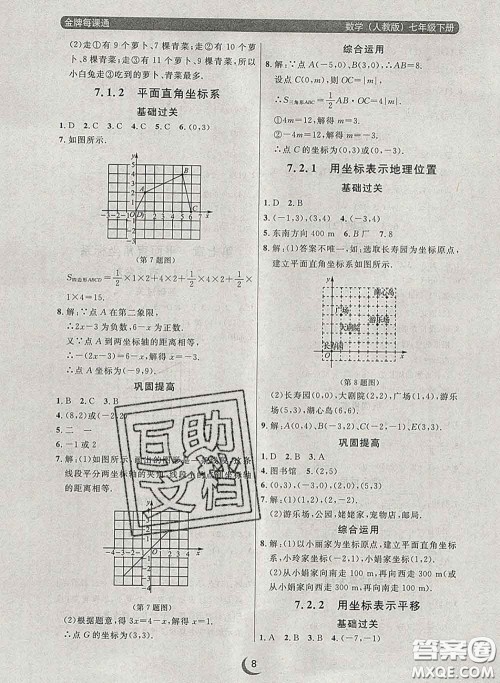 金牌每课通
数学(人教版)七年级下册
(2)走①有 9 个萝卜、7 棵青菜;走②有 10 个萝
卜、8 棵青菜;走③有 11 个萝卜、7 棵青菜;所以
小白兔走③吃到的萝卜、青菜最多.
7.1.2 平面直角坐标系
基础过关
1. D 2. C 3. A 4. C 5. C 6. (0,3)
7. 如图所示.
(第 7 题图)
S四边形ABCD=1/2×1×2+1/2×(2+4)×4+1/2
×1×4=15.
8. 解:∵点 A 在第二象限,
∴2x-3 为负数,6-x 为正数.
又∵点 A 到两坐标轴的距离相等,
∴-(2x-3)=6-x,解得 x=-3.
∴点 A 的坐标为(-9,9).
巩固提高
1. B 2. A 3. C
4. (8,2)或(-2,2)
5. 二 一
6. -1或2
7. 解:(1)如图所示,
线段平分两坐标轴的夹角,线段上的点到坐标轴的
距离相等.
(第 7 题图)
(2)根据题意,得 3-m=0,解得 m=3.
∴点 G 的坐标为(3,3).
综合运用
8. 解:∵点 A(-5,0),B(3,0),∴AB=8.
设点 C(0,m),∴OC=|m|.
∴S三角形ABC=1/2AB·OC=4|m|.
①4m=12,解得 m=3.
②-4m=12,解得 m=-3.
∴点 C 的坐标为(0,3)或(0,-3).
7.2.1 用坐标表示地理位置
基础过关
1. D 2. (-1,3) 3. (-3,4) 4. (-3,1)
5. 东南方向400 m 6. B厂 7. B
8. 解:(1)答案不唯一,如:选取长寿园为坐标原点,
建立平面直角坐标系如图所示.
广场
湖心岛
大剧院
游乐场
长寿园
(第 8 题图)
(2)长寿园(0,0),大剧院(2,2),广场(1,4),游乐
场(5,3),湖心岛(5,5).
9. 解:A(0,4),B(-3,2),C(-2,-1),D(2,-1),
E(3,2).
巩固提高
1. D 2. A 3. B
4. 图书馆 5. (2,5)
6. (3,150°)
7. 解:(1)(2,-2),(-1,-2).
(2)游乐场,公园,姥姥家,宠物店,邮局.
综合运用
8. 解:(1)以小丽家为坐标原点,建立平面直角坐标
系,小玲家坐标为(-150,100),小娟家坐标为
(200,300).
(2)从小娟家向南走 100 m,再向西走 300 m(或
先从小娟家向西走 300 m,再向南走 100 m).
7.2.2 用坐标表示平移
基础过关
1. A 2. D 3. C 4. (-7,-1)
8
互助文档
答案圈